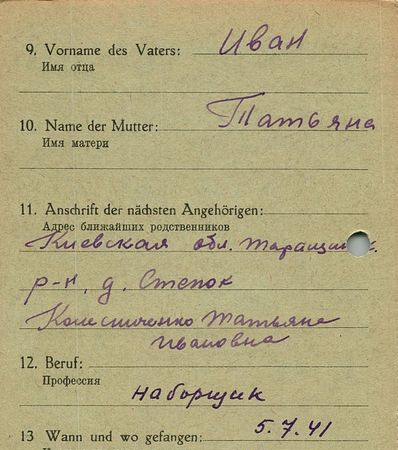 9. Vorname des Vaters: Иван
Имя отца
10. Name der Mutter: Татьяна
Имя матери
11. Anschrift der nächsten Angehörigen:
Адрес ближайших родственников
Киевская обл. Таращан
р-н, д. Степок
Колесниченко Татьяне
Ивановна
12. Beruf:
Профессия
наборщик
13 Wann und wo gefangen: 5.7.41